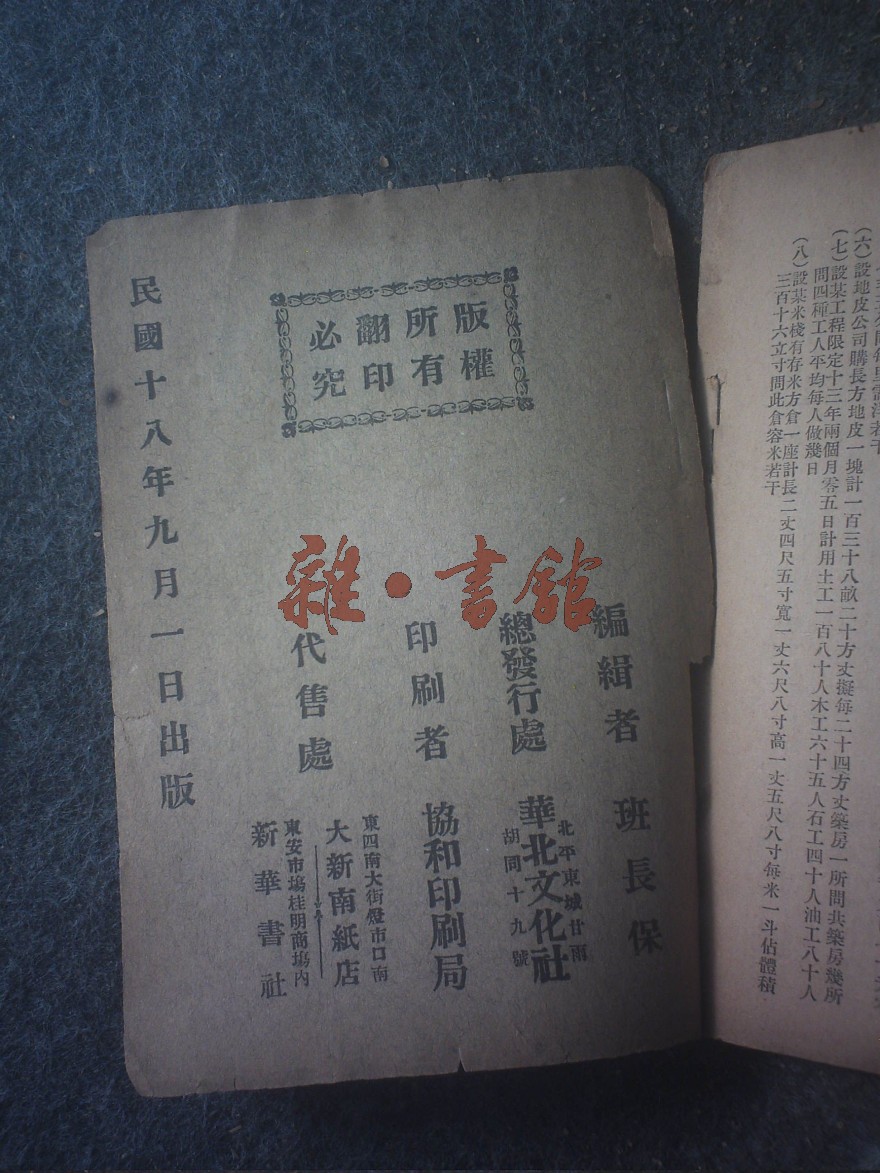 三百十六立寸問此倉容米若干
(八)設某米棧有存米方倉一座計長二丈四尺五寸寬一丈六尺八寸高一丈五尺八寸每米一斗佔體積
問四種工人平均每人做幾日
(七)設某工程限定十三年兩個月零五日計用土工一百八十人木工六十五人石工四十人油工八十人
(六)設地皮公司購長方地皮一塊計一百三十八畝二十方丈擬每二十四方丈築房一所問共築房幾所
版權
所有
翻印
必究
編緝者 班長保
總發行處 華北文化社
北平東城甘雨
胡同十九號
印刷者 協和印刷局
代售處
東四南大街燈市口南
大新南紙店
東安市場桂明商場內
新華書社
民國十八年九月一日出版
雜·書館